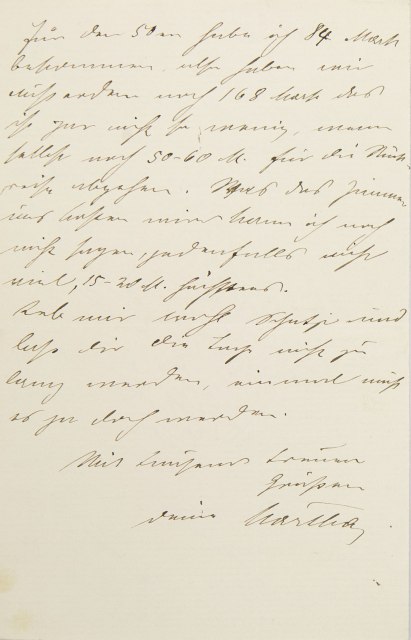 Für den 50er habe ich 84 Mark
bekommen, also haben wir
außerdem noch 168 Mark das
ist gar nicht so wenig, wenn
selbst noch 50-60 M. für die Rück-
reise abgehen. Was das Zimmer
uns kosten wird kann ich noch
nicht sagen, jedenfalls nicht
viel, 15-20 M. höchstens.
Leb mir wohl Schatzi und
laß dir die Tage nicht zu
lang werden, einmal muß
es ja doch werden.
Mit tausend treuen
Grüßen
deine Martha